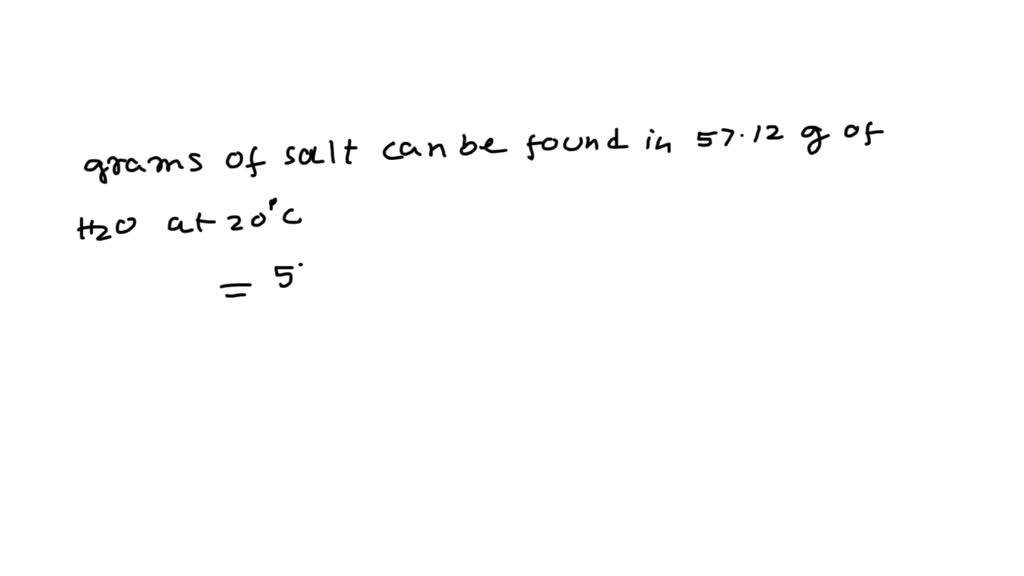 grams of salt can be found in 57.12 g of
H2O at 20°C
= 5.